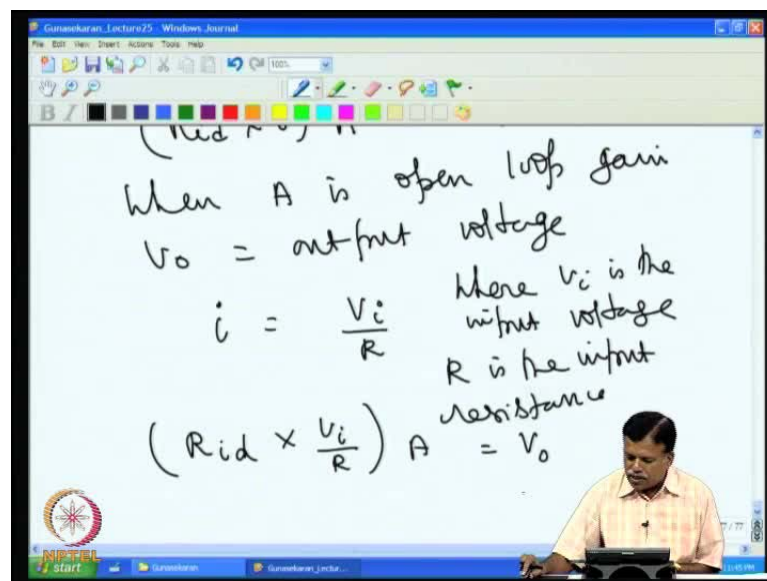 Gunasekaran_Lecture25 - Windows Journal
File Edit View Insert Actions Tools Help
100%
B I
When A is open loop gain
Vo = output voltage
i = Vi / R where Vi is the input voltage
R is the input resistance
(Rid × Vi / R) A = Vo
NPTEL
start
Gunasekaran
Gunasekaran_Lectur...